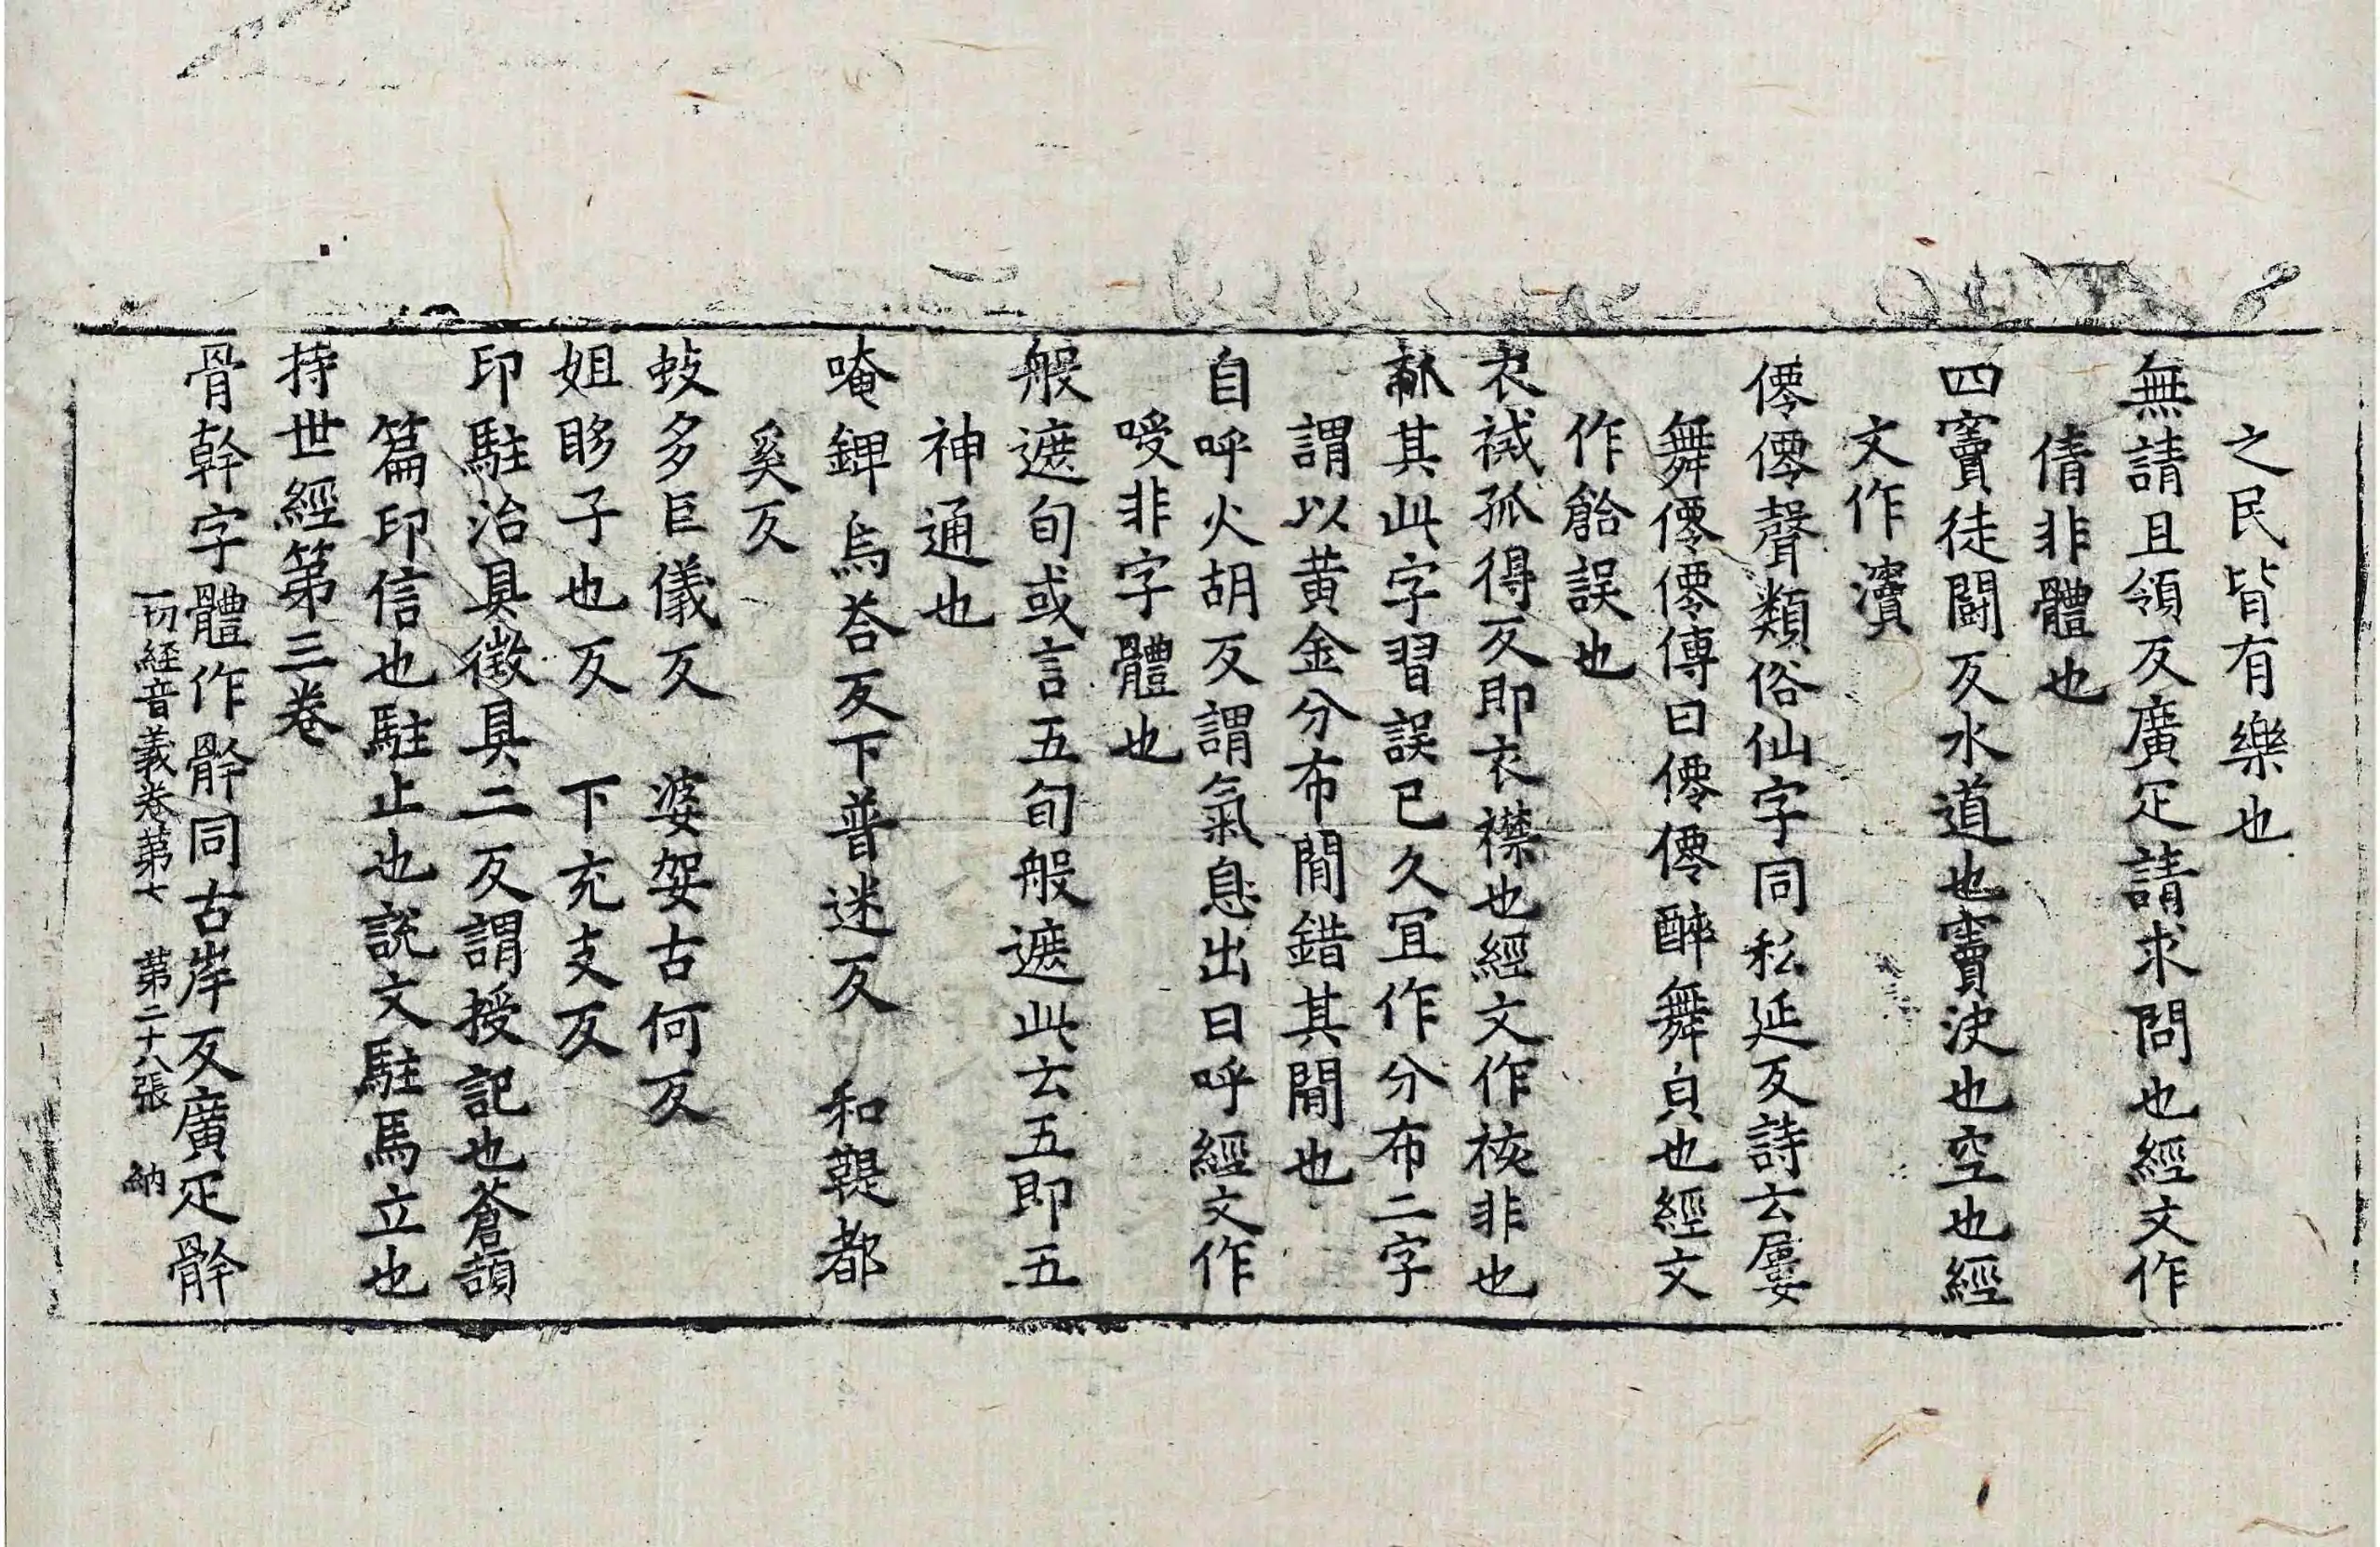 之民皆有樂也
無請且領反廣疋請求問也經文作
倩非體也
四竇徒鬪反水道也竇決也空也經
文作瀆
僊僊聲類俗仙字同私延反詩云屢
舞僊僊傳曰僊僊醉舞皃也經文
作䭕誤也
衣祴孤得反即衣襟也經文作裓非也
其此字習誤已久冝作分布二字
謂以黄金分布閒錯其閒也
自呼火胡反謂氣息出曰呼經文作
嘑非字體也
般遮旬或言五旬般遮此云五即五
神通也
唵錍烏荅反下普迷反 和鞮都
奚反
蚑多巨儀反 婆娿古何反
姐眵子也反 下充支反
印駐治具徵具二反謂授記也蒼頡
篇印信也駐止也說文駐馬立也
持世經第三卷
骨幹字體作骭同古岸反廣疋骭
一切経音義卷第七 第二十八張 納